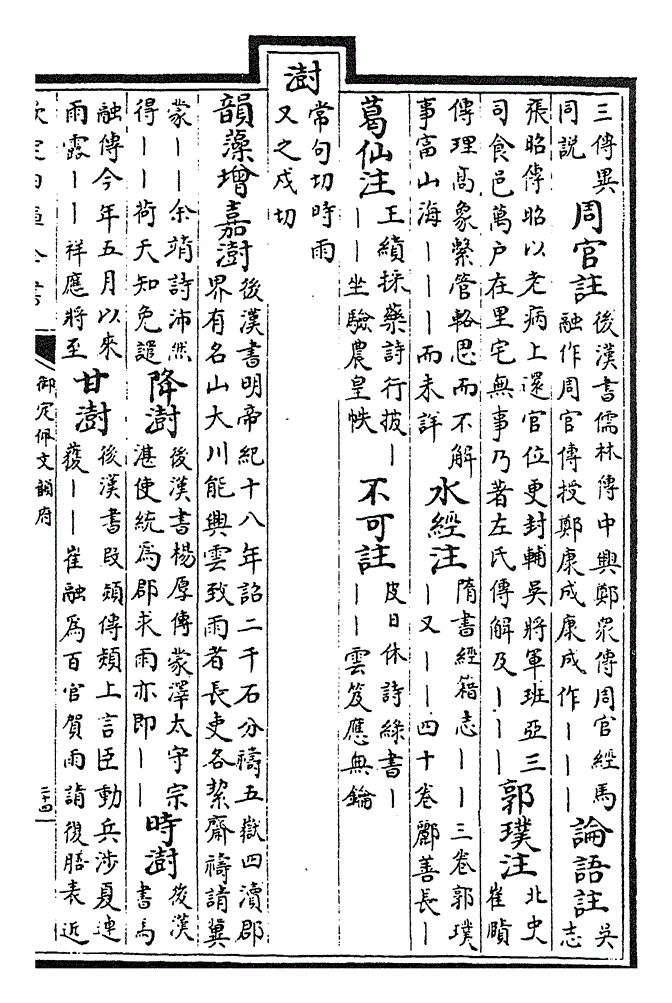 三傳異
同説
周官註
後漢書儒林傳中興鄭衆傳周官經馬
融作周官傳授鄭康成康成作｜｜｜
論語註
吳
志
張昭傳昭以老病上還官位更封輔吳將軍班亞三
司食邑萬户在里宅無事乃著左氏傳解及｜｜｜
郭璞注
北史
崔賾
傳理髙象繫管輅思而不解
事富山海｜｜｜而未詳
水經注
隋書經籍志｜｜｜三卷郭璞
｜又｜｜｜四十卷酈善長｜
葛仙注
王績採藥詩行披｜
｜｜坐驗農皇帙
不可註
皮日休詩綠書｜
｜｜雲笈應無鑰
澍
常句切時雨
又之戍切
韻藻增嘉澍
後漢書明帝紀十八年詔二千石分禱五嶽四瀆郡
界有名山大川能興雲致雨者長吏各絜齋禱請冀
蒙｜｜余靖詩沛然
得｜｜荷天知免譴
降澍
後漢書楊厚傳蒙澤太守宗
湛使統為郡求雨亦即｜｜
時澍
後漢
書馬
融傳今年五月以來
雨露｜｜祥應將至
甘澍
後漢書段熲傳熲上言臣動兵涉夏連
獲｜｜崔融為百官賀雨請復膳表近
欽定四庫全書
御定佩文韻府
二十四